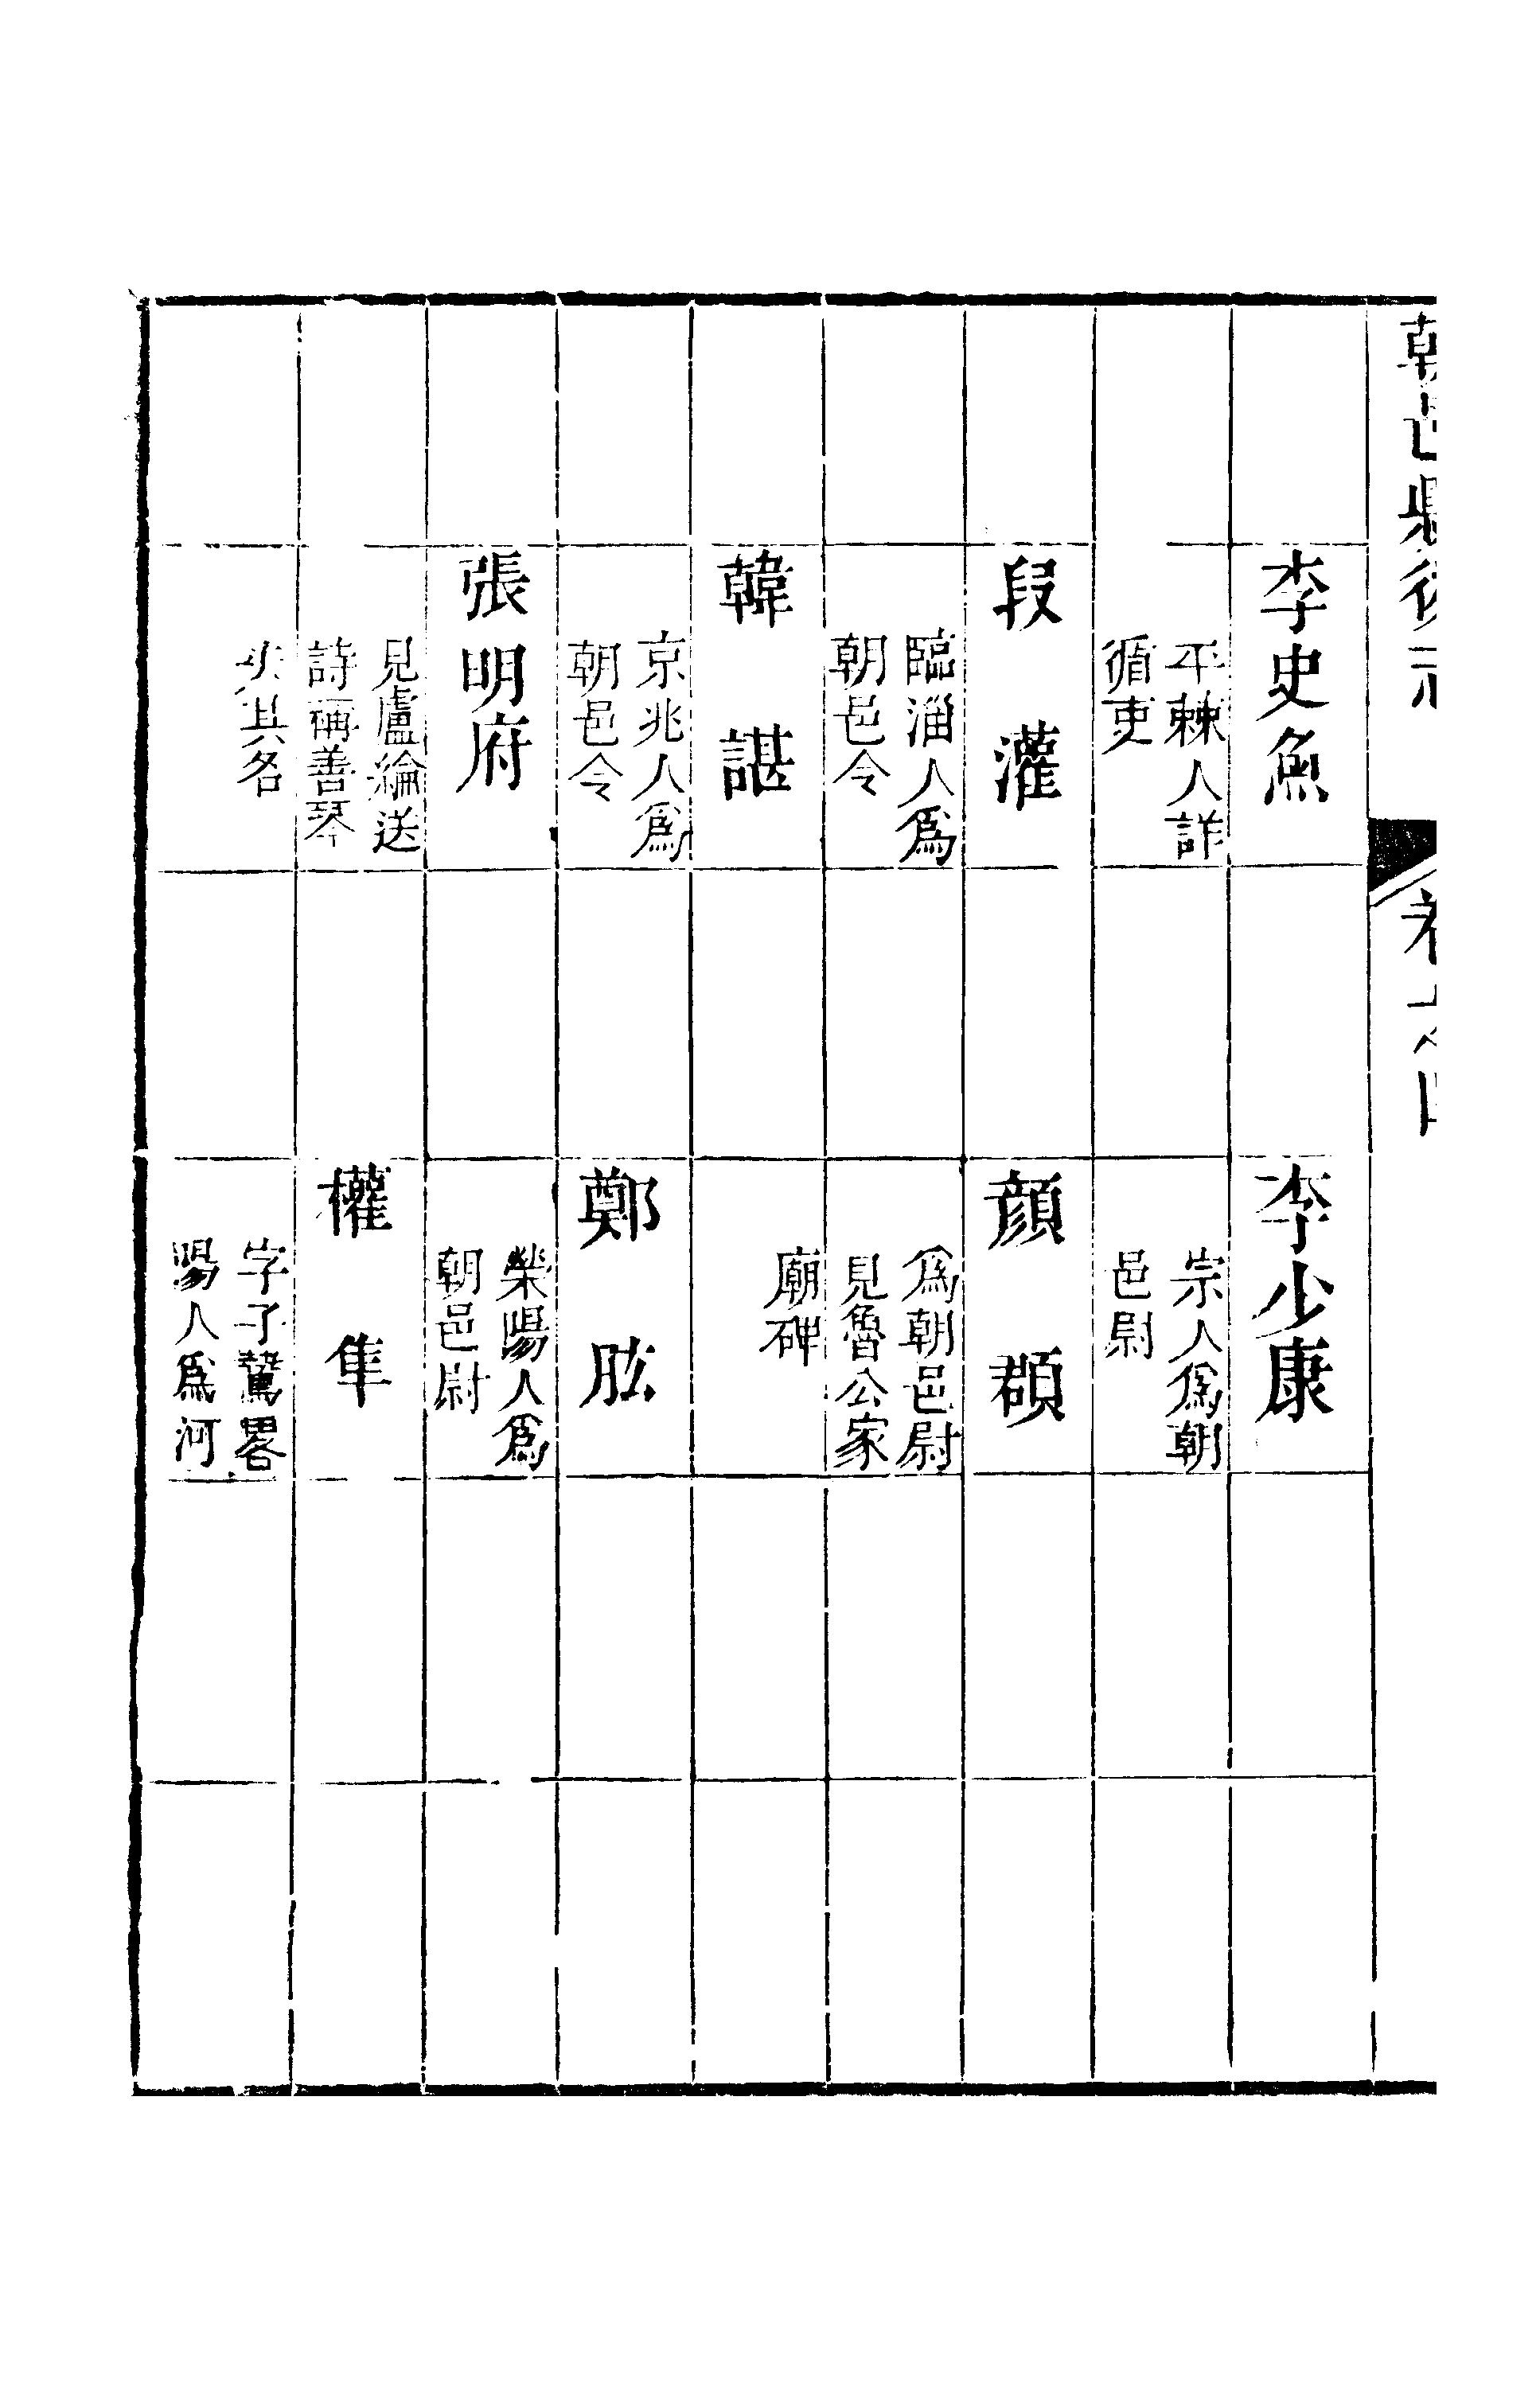 朝邑縣後志
李史魚
平棘人詳
循吏
段灌
臨淄人爲
朝邑令
韓諶
京兆人爲
朝邑令
張明府
見盧綸送
詩稱善琴
失其名
李少康
宗人爲朝
邑尉
顔頵
爲朝邑尉
見魯公家
廟碑
鄭肱
榮陽人爲
朝邑尉
權隼
字子鷙畧
陽人爲河